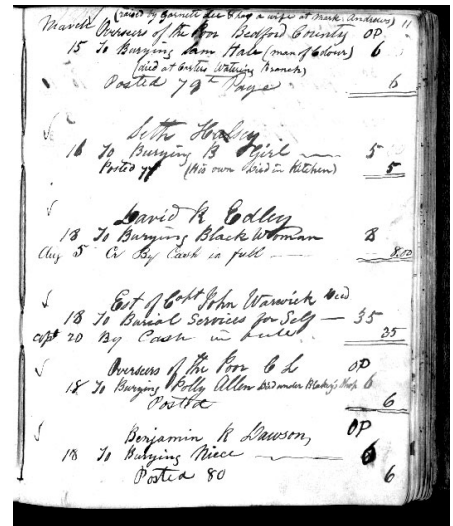 (raised by Garnett Lee & has a wife at Mark Andrews) 11
March Overseers of the Poor Bedford County OP
15 To Burying Sam Hale (man of Colour) 6
(died at Watering Branch)
Posted 79th Page 6
Seth Halsey
16 To Burying B Girl 5
Posted 79 (His own died in Kitchen) 5
David R Edley
18 To Burying Black Woman 8
Aug 5 Cr By Cash in full 8.00
Est of Capt John Warwick Decd
18 To Burial Services for Self 35
Sept 20 By Cash in full 35
Overseers of the Poor C L OP
18 To Burying Polly Allen Died under Shop 6
Posted 6
Benjamin R Lawson, OP
18 To Burying Niece 6
Posted 80 6